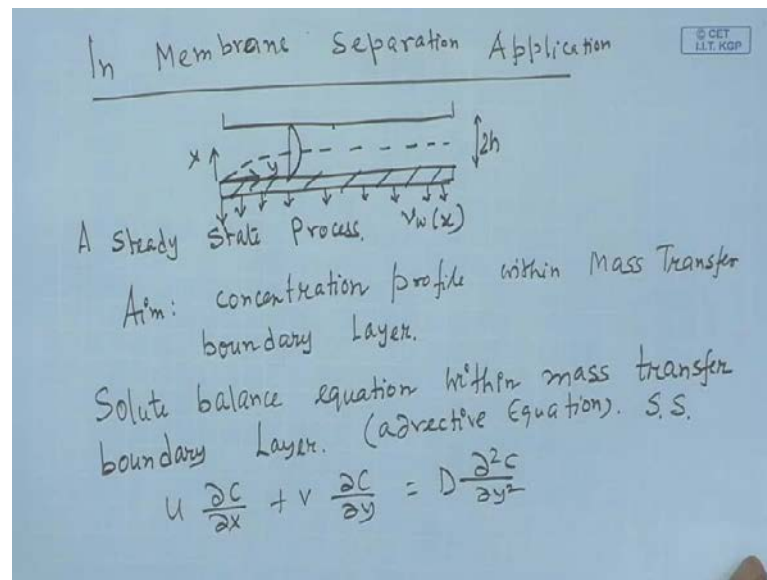 In Membrane Separation Application
© CET
I.I.T. KGP
x
y
2h
v_w(x)
A Steady State Process.
Aim: concentration profile within Mass Transfer
boundary Layer.
Solute balance equation within mass transfer
boundary Layer. (advective Equation). S.S.
u ∂C/∂x + v ∂C/∂y = D ∂²C/∂y²